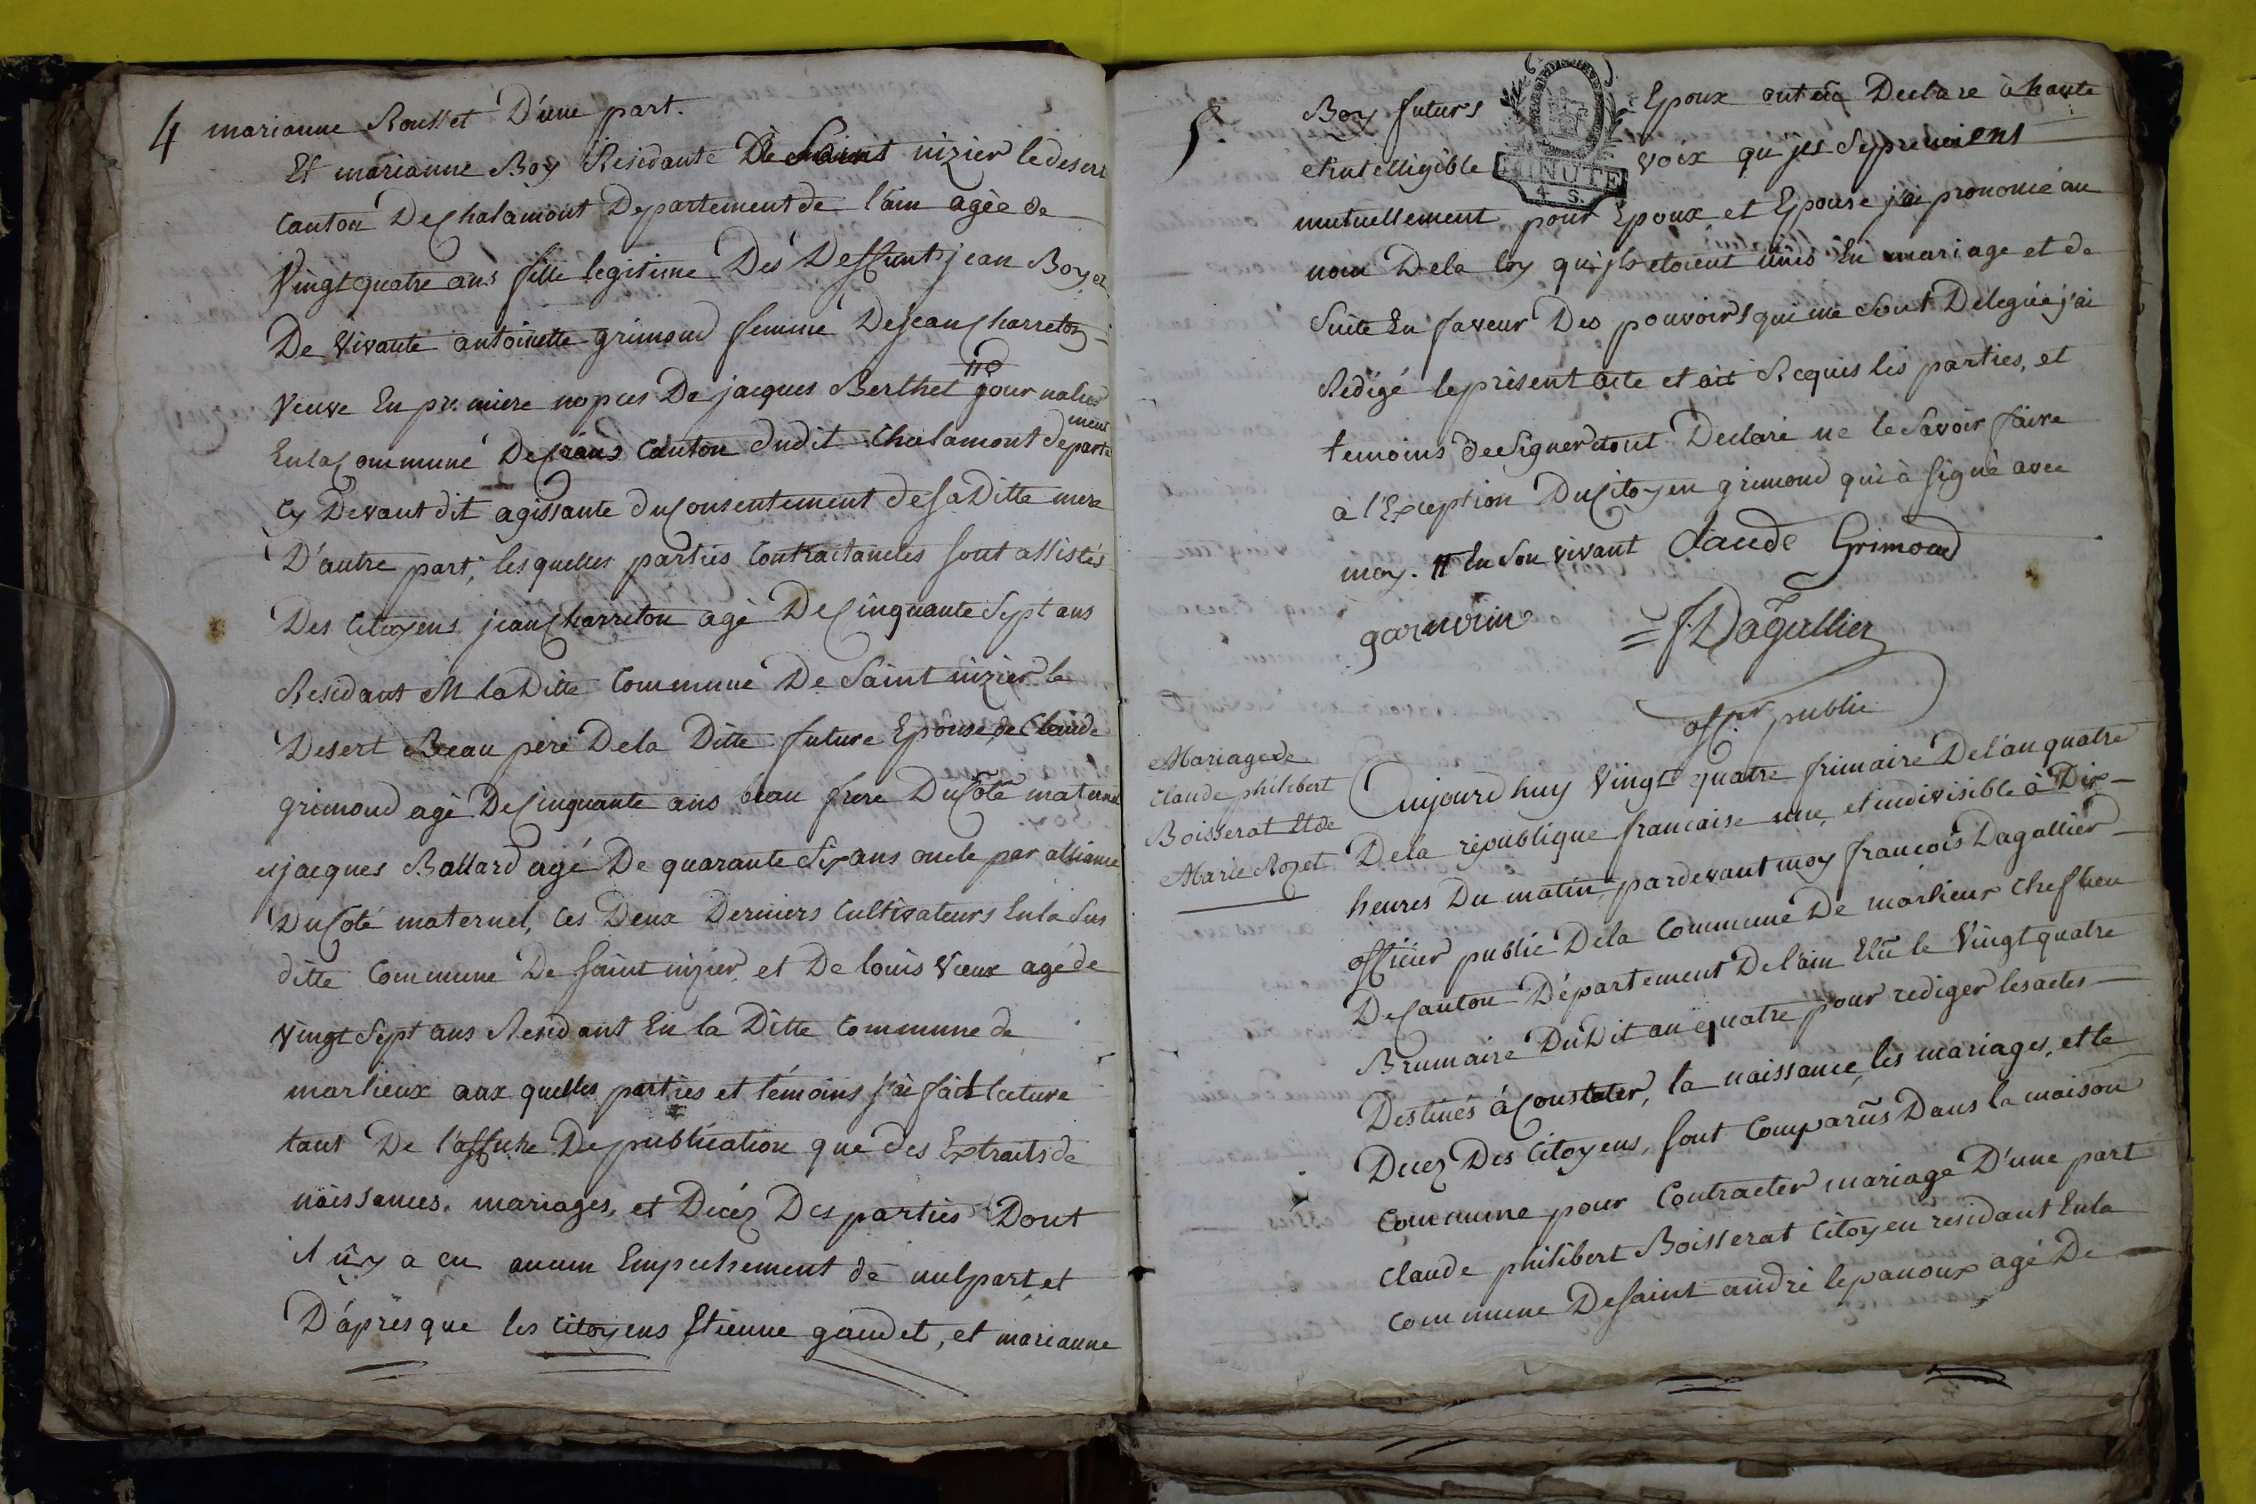 4 marianne Rousset D'une part.
Et marianne Boy Residante De Saint nizier le desert
Canton De Chalamont Departement de l'ain agèe de
Vingt quatre ans fille legitime Des Deffunts jean Boy et
De Vivante antoinette grimond femme De jean Charreton
Veuve En premiere nopces De jacques Berthet # journalier
En la Commune De Crans Canton dudit Chalamont departement
Cy Devant dit agissante du Consentement de sa Ditte mere
D'autre part, lesquelles parties Contractantes sont assistés
Des Citoyens jean Charreton agé De Cinquante Sept ans
Residant en la Ditte Commune De Saint nizier le
Desert Beau pere De la Ditte future Epouse, de Claude
grimond agé De Cinquante ans beau frere Du Coté maternel
et jacques Ballard agé De quarante Six ans oncle par alliance
Du Coté maternel, Ces Deux Derniers Cultivateurs En la Sus
ditte Commune De Saint nizier, et De louis Vieux agé de
Vingt Sept ans Residant En la Ditte Commune de
marlieux aux quelles parties et témoins j'ai fait lecture
tant De l'affiche De publication que des Extraits de
naissances, mariages, et Décéz Des parties Dont
il n'y a eu aucun Empechement de nulpart, et
D'après que les Citoyens Etienne gaudet, et marianne
5.
Boy futurs Epoux ont eu Declare à haute
et intelligible voix qu'jlsSeprenoient
MINUTE
4 S.
mutuellement pour Epoux et Epouse j'ai prononcé au
nom De la loy qu'jls etoient unis En mariage et de
Suite En faveur Des pouvoirs qui me Sont Delegué j'ai
Redigé le présent acte et ait Requis les parties, et
temoins de Signer dont Declaré ne le Savoir faire
à l'Exception Du Citoyen grimond qui à Signé avec
moy. # En Son vivant Claude Grimond
F. Dagallier
off.er public
Mariage de
Claude philibert
Boisserat Et de
Marie Rozet
Aujourd huy Vingt quatre frimaire De l'an quatre
De la république francaise une, et indivisible à Dix
heures Du matin, pardevant moy francois Dagallier
officier public De la Commune De marlieux Chef lieu
De Canton Département De l'ain Elu le Vingt quatre
Brumaire Du Dit an quatre pour rediger les actes
Destinés à Constater, la naissance, les mariages, et le
Decez Des Citoyens, Sont Comparus Dans la maison
Commune pour Contracter mariage D'une part
Claude philibert Boisserat Citoyen residant En la
Commune De Saint andré le panoux agé De